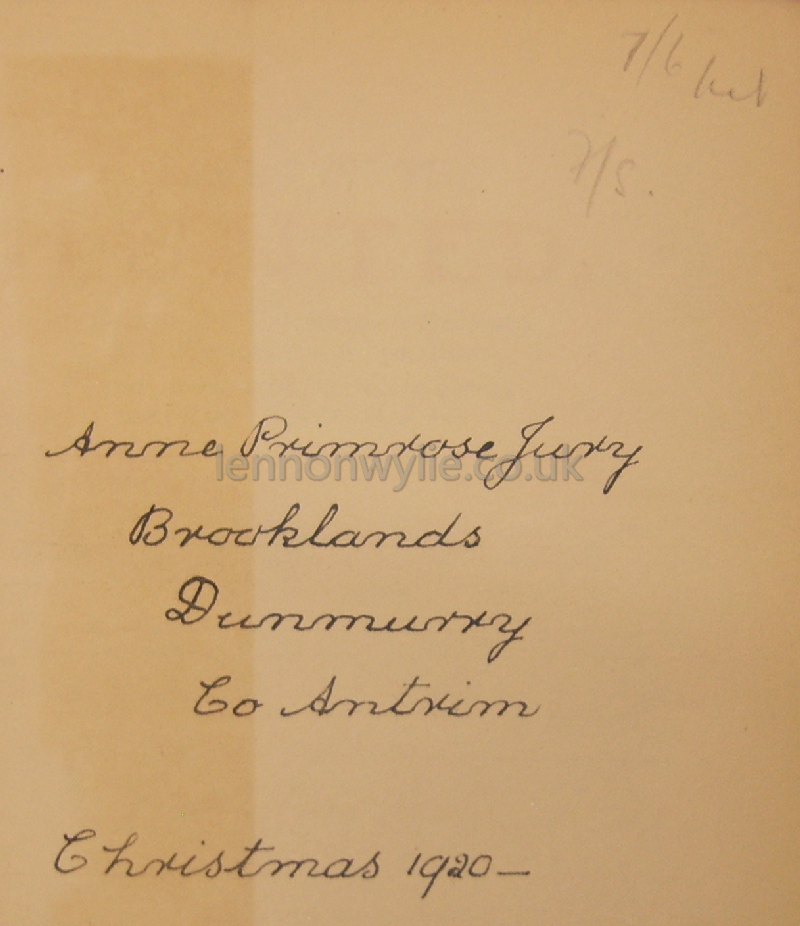 7/6 net
7/6.
Anne Primrose Jury
lennonwylie.co.uk
Brooklands
Dunmurry
Co Antrim
Christmas 1920—